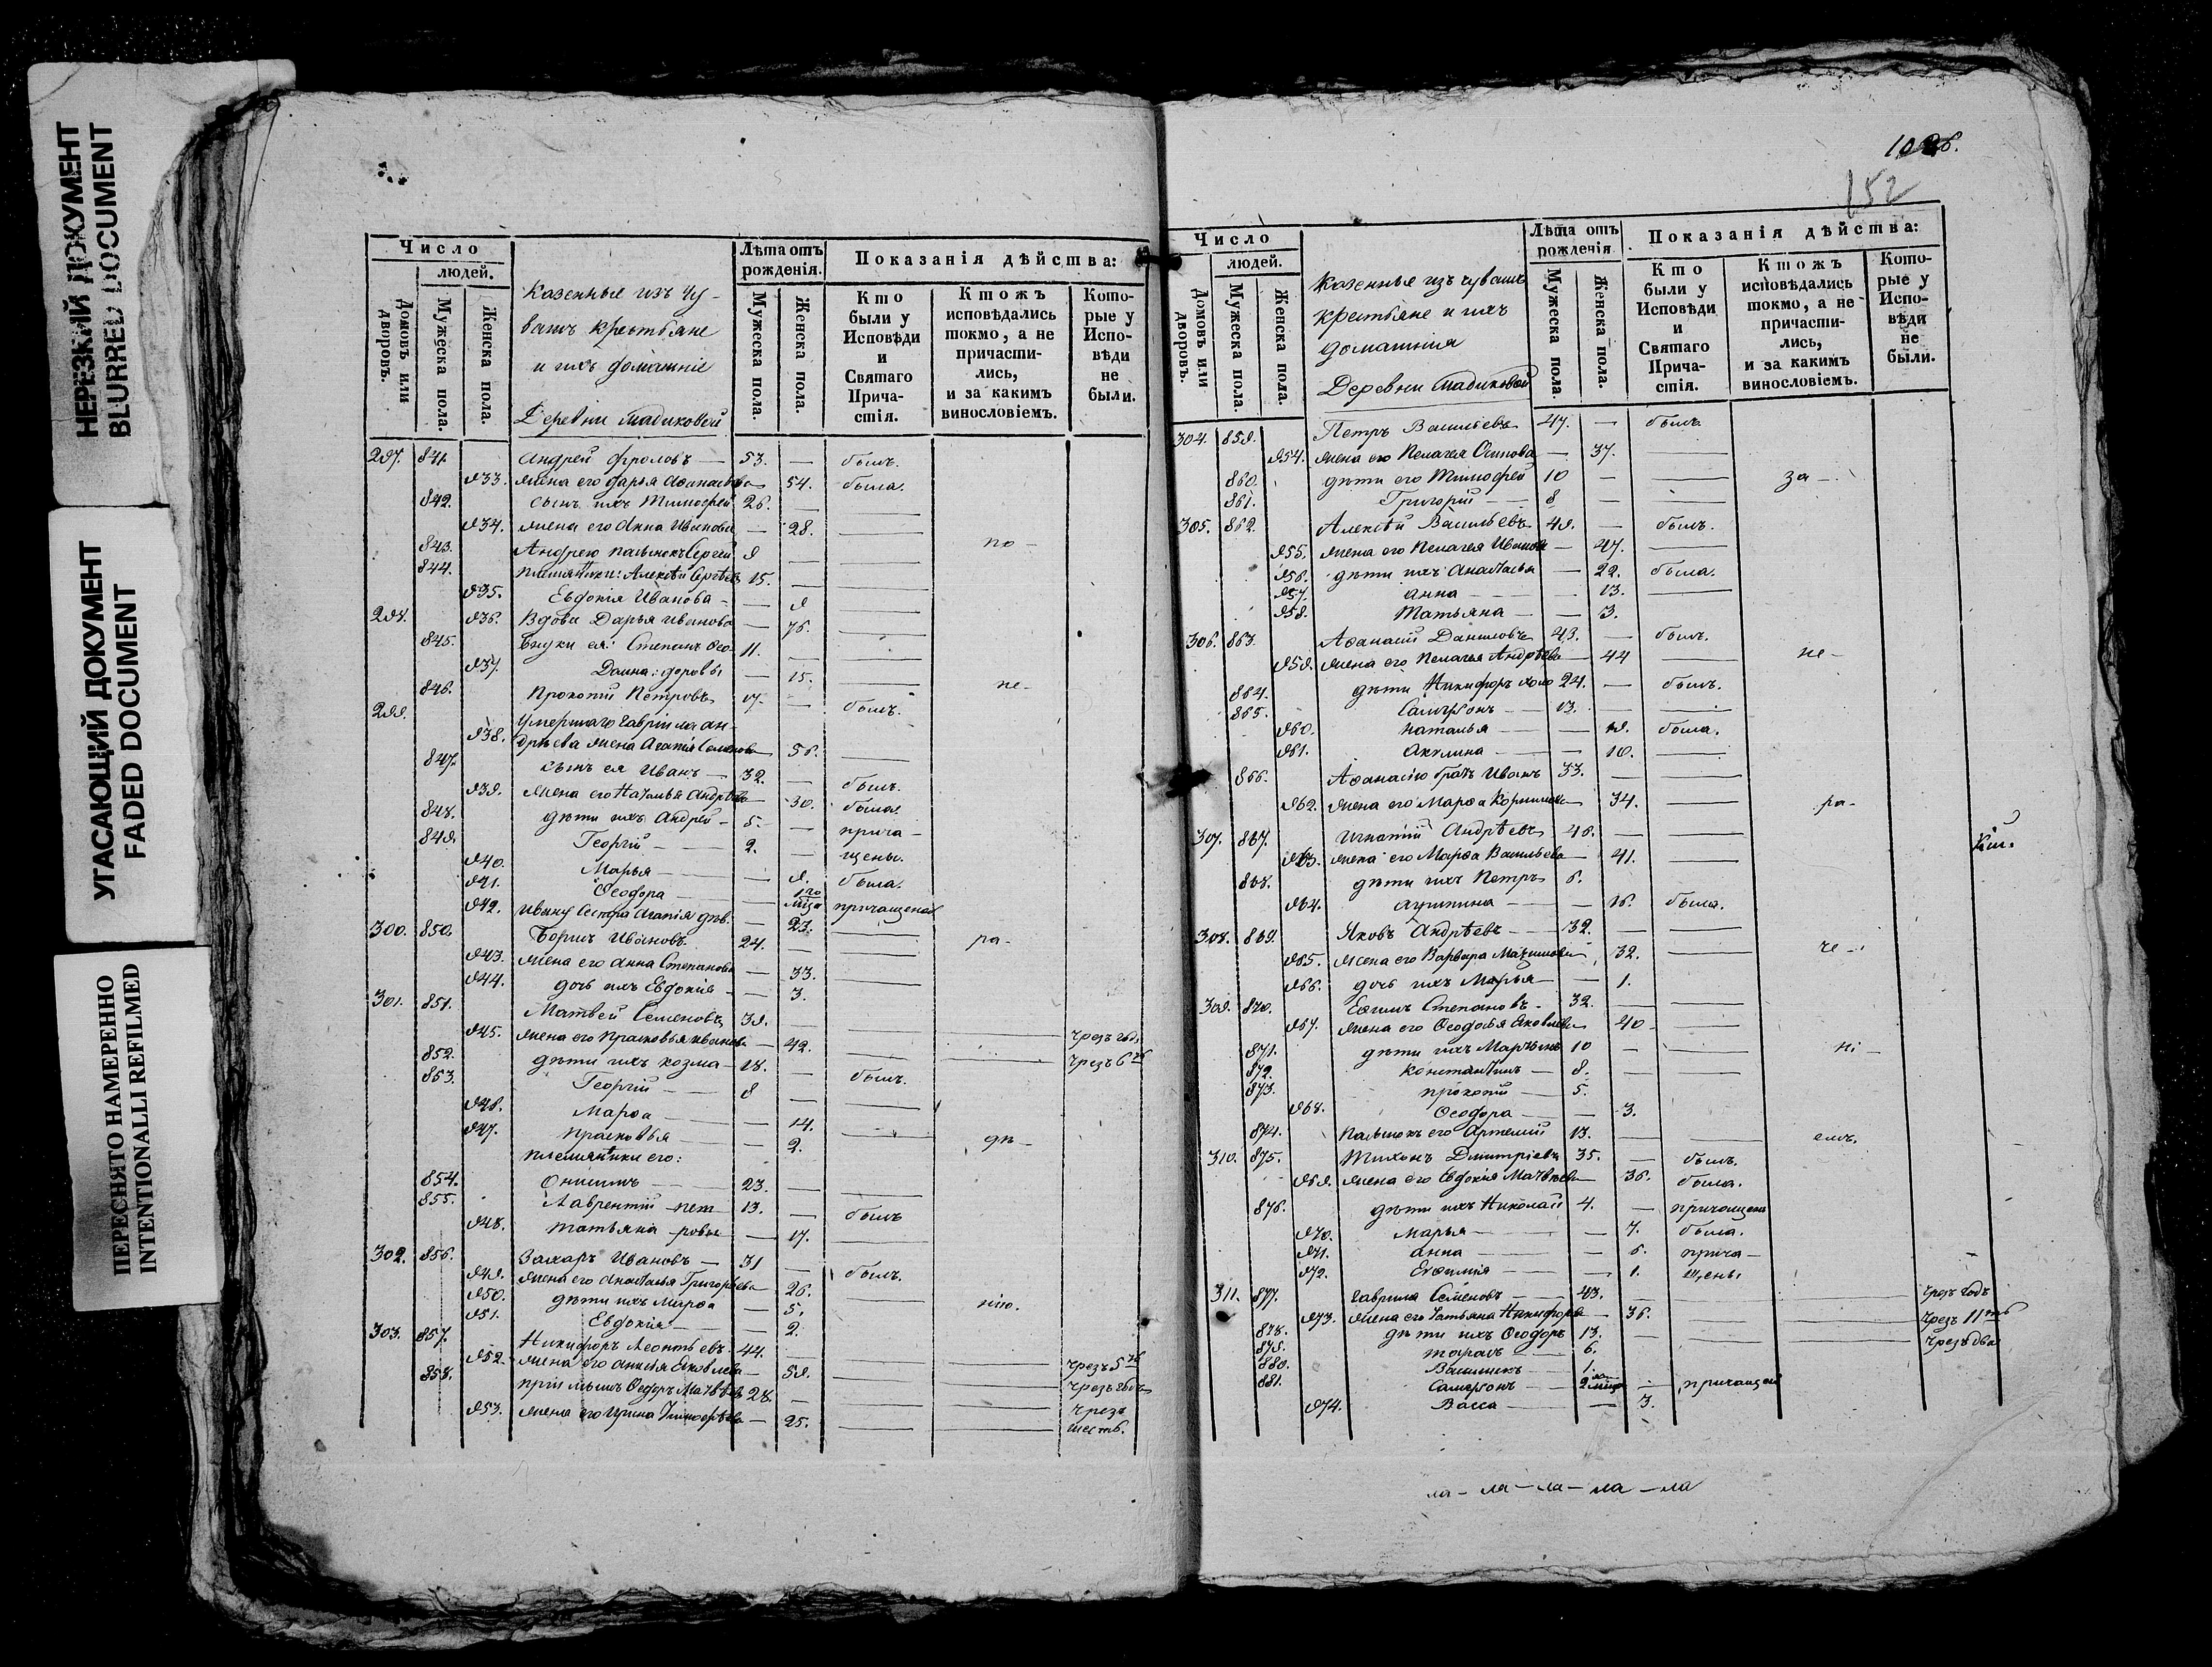 НЕРЕЗКИЙ ДОКУМЕНТ
BLURRED DOCUMENT
УГАСАЮЩИЙ ДОКУМЕНТ
FADED DOCUMENT
ПЕРЕСНЯТО НАМЕРЕННО
INTENTIONALLI REFILMED
Число
людей.
Домовъ или дворовъ.
Мужеска пола.
Женска пола.
Казенные изъ чу-
вашъ крестьяне
и ихъ домашніе
Деревни Шадиковой
Лѣта отъ рожденія.
Мужеска пола.
Женска пола.
Показанія дѣйства:
Кто были у Исповѣди и Святаго Прича-стія.
Ктожъ исповѣдались токмо, а не причасти-лись, и за какимъ винословіемъ.
Кото-рые у Испо-вѣди не были.
297. 841. Андрей Фроловъ — 53. — былъ.
933. жена его Дарья — 54. была.
842. сынъ ихъ Тимофей 26. —
934. жена его Анна Иванова — 28.
843. Андрею пасынокъ Сергей 9 — по-
844. племянники: Алексѣй Сергѣевъ 15. —
935. Евдокія Иванова — 9
298. 936. Вдова Дарья Иванова — 76.
845. Внуки ея: Степанъ Ѳео- 11. —
937. Домна: доровы — 15.
846. Прокопій Петровъ 17. — былъ. не-
299. Умершаго Гавріила Ан-
938. дреева жена Агапія Семенова 56.
847. сынъ ея Иванъ — 32. — былъ.
939. жена его Наталья Андрѣева 30. была.
848. дѣти ихъ Андрей — 5. — прича-
849. Георгій — 2. — щены.
940. Марья — 9. была.
941. Ѳеодора — причащена
942. Ивану сестра Агапія дѣв. — 23.
300. 850. Борисъ Ивановъ 24. — ра-
943. жена его Анна Степанова — 33.
944. дочь ихъ Евдокія — 3.
301. 851. Матвей Семеновъ 39. — чрезъ год
945. жена его Прасковья Иванова — 42. чрезъ 6ть
852. дѣти ихъ Козма — 18. — былъ.
853. Георгій — 8 —
946. Марѳа — 14.
947. Прасковья — 2. дѣ-
племянники его:
854. Онисимъ — 23. —
855. Лаврентій пет- 13. — былъ
948. Татьяна ровы — 17.
302. 856. Захаръ Ивановъ — 31 — былъ.
949. жена его Анастасія Григорьева — 26.
950. дѣти ихъ Марѳа — 5. нію.
951. Евдокія — 2.
303. 857. Никифоръ Леонтьевъ 44. — чрезъ 5ть
952. жена его Анисья Яковлева — 59. чрезъ годъ
858. пріемышъ Ѳедоръ Матвѣевъ 28. — чрезъ
953. жена его Ирина Тимоѳеева — 25. шесть.
152
Число
людей.
Домовъ или дворовъ.
Мужеска пола.
Женска пола.
Казенные изъ чувашъ
крестьяне и ихъ
домашнія
Деревни Шадиковой
Лѣта отъ рожденія
Мужеска пола
Женска пола.
Показанія дѣйства:
Кто были у Исповѣди и Святаго Прича-стія.
Ктожъ исповѣдались токмо, а не причасти-лись, и за какимъ винословіемъ.
Кото-рые у Испо-вѣди не были.
304. 859. Петръ Васильевъ 47. — былъ
954. жена его Пелагея Осипова — 37.
860. дѣти его Тимофей 10 — за-
861. Григорій — 8 —
305. 862. Алексѣй Васильевъ 49. — былъ.
955. жена его Пелагея Иванова — 47.
956. дѣти ихъ Анастасья — 22. была.
957. Анна — 13.
958. Татьяна — 3.
306. 863. Аѳанасій Даниловъ 43. — былъ.
959. жена его Пелагея Андрѣева — 44 не-
864. дѣти Никифоръ 24. — былъ.
865. Сампсонъ — 13. —
960. Наталья — была.
961. Акулина — 10.
866. Аѳанасію братъ Иванъ 33. —
962. жена его Марѳа Корнилова — 34. ра-
307. 867. Игнатій Андрѣевъ 46. —
963. жена его Марѳа Васильева — 41.
868. дѣти ихъ Петръ 6.
964. Агрипина — 16. была.
308. 869. Яковъ Андрѣевъ — 32. —
965. жена его Варвара Максимова 32. че-
966. дочь ихъ Марья — 1.
309. 870. Еѳимъ Степановъ — 32. —
967. жена его Ѳеодосья Яковлева 40
871. дѣти ихъ Мартынъ 10 — ні-
872. Константинъ — 8. —
873. Прокопій — 5.
968. Ѳеодора — 3.
874. Пасынокъ его Артемій 13. — емъ.
310. 875. Тихонъ Димитріевъ 35. — былъ.
969. жена его Евдокія Матвѣева — 36. была.
876. дѣти ихъ Николай 4. — причащенъ
970. Марья — 7. была.
971. Анна — 6. прича-
972. Евѳимія — 1. щены
311. 877. Гаврила Семеновъ — 43. — чрезъ годъ
973. жена его Татьяна Никифорова — 36. чрезъ 11ть
878. дѣти ихъ Ѳеодоръ 13. — чрезъ два
879. Тарасъ — 6.
880. 1.
881. Сампсонъ — причащенъ
974. Васса — 3.
ла-ла-ла-ла-ла